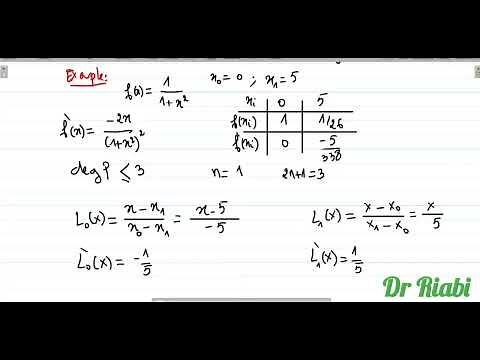 Example: f(x) = 1/(1+x²) x₀ = 0 ; x₁ = 5
xᵢ 0 5
f(xᵢ) 1 1/26
f`(x) = -2x/(1+x²)² f`(xᵢ) 0 -5/338
deg P ≤ 3 n = 1 2n+1 = 3
L₀(x) = (x - x₁)/(x₀ - x₁) = (x - 5)/(-5) L₁(x) = (x - x₀)/(x₁ - x₀) = x/5
L`₀(x) = -1/5 L`₁(x) = 1/5
Dr Riabi